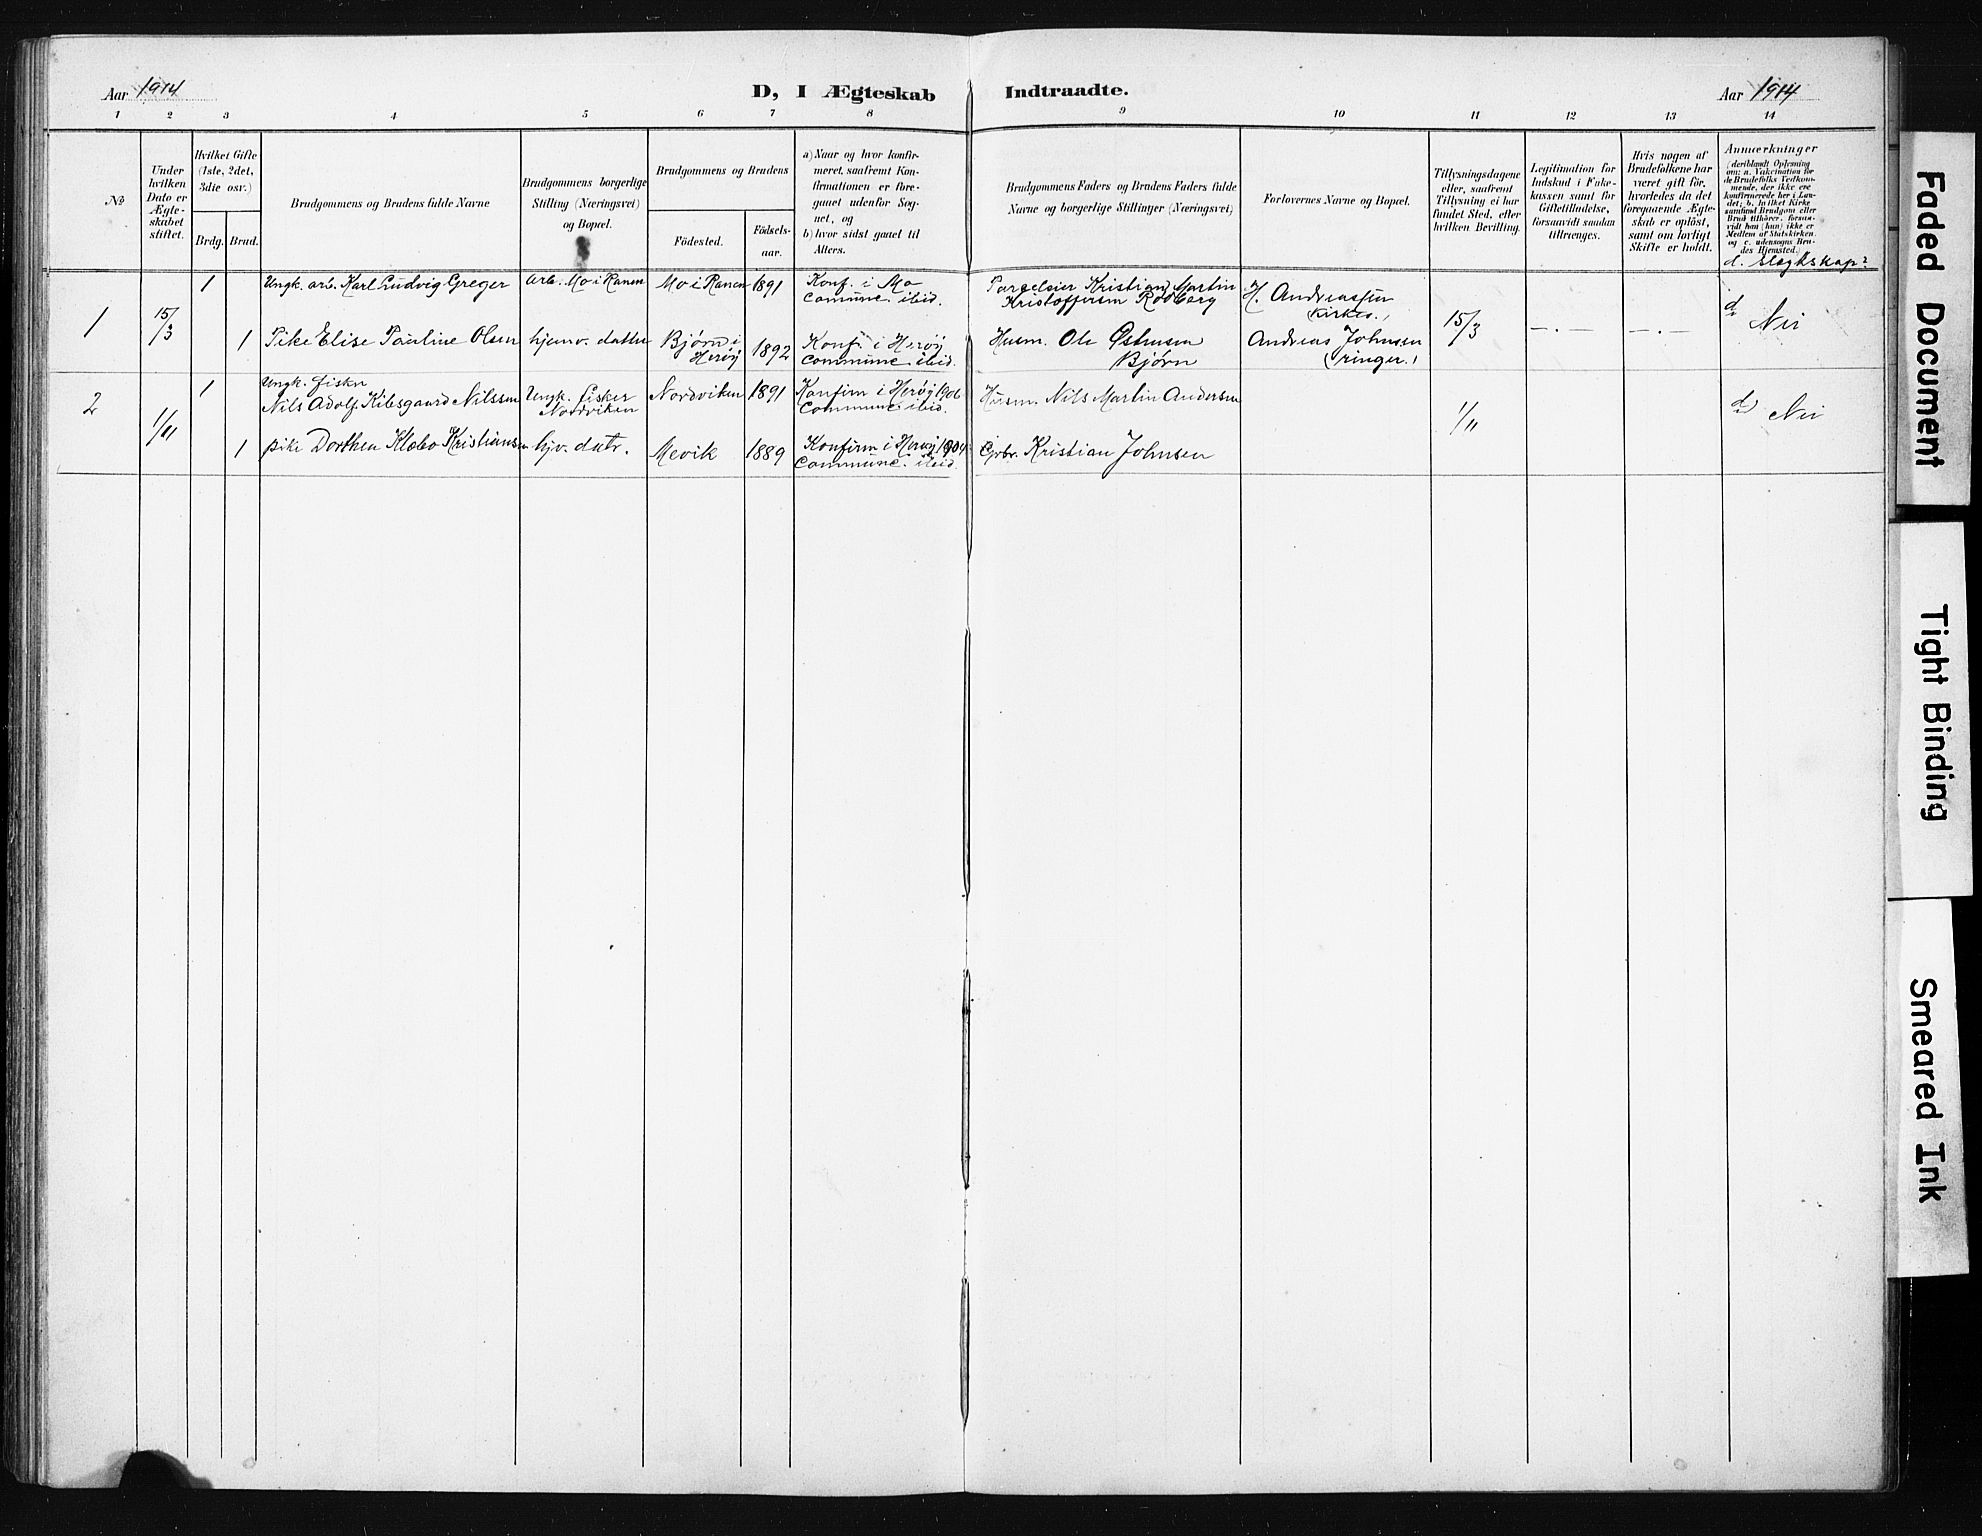 Aar 1914
D, I Ægteskab Indtraadte.
Aar 1914
1 2 3 4 5 6 7 8 9 10 11 12 13 14
No
Under
hvilken
Dato er
Ægte-
skabet
stiftet.
Hvilket Gifte
(1ste, 2det,
3die osv.)
Brdg. Brud.
Brudgommens og Brudens fulde Navne
Brudgommens borgerlige
Stilling (Næringsvei)
og Bopæl.
Brudgommens og Brudens
Födested.
Födsels-
aar.
a) Naar og hvor konfir-
meret, saafremt Kon-
firmationen er fore-
gaaet udenfor Sog-
net, og
b) hvor sidst gaaet til
Alters.
Brudgommens Faders og Brudens Faders fulde
Navne og borgerlige Stillinger (Næringsvei)
Forlovernes Navne og Bopæl.
Tillysningsdagene
eller, saafremt
Tillysning ei har
fundet Sted, efter
hvilken Bevilling.
Legitimation for
Indskud i Enke-
kassen samt for
Giftetilladelse,
forsaavidt saadan
tiltrænges.
Hvis nogen af
Brudefolkene har
været gift för,
hvorledes da det
foregaaende Ægte-
skab er oplöst,
samt om lovligt
Skifte er holdt.
Anmærkninger
(deriblandt Oplysning
om: a. Vakcination for
de Brudefolks Vedkom-
mende, der ikke ere
konfirmerede her i Lan-
det; b. hvilket Kirke
samfund Brudgom eller
Brud tilhörer, forsaa-
vidt han (hun) ikke er
Medlem af Statskirken,
og c. udensogns Bru-
des Hjemsted.)
d. Slegtskap?
1
15/3
1
Ungk. arb. Karl Ludvig Greger
arb. Mo i Ranen
Mo i Ranen
1891
Konf. i Mo
Commune. ibid.
Kristian Martin
Kristoffersen
H. Andreassen
Kirkes.
15/3
-.-
-.-
d Nei
1
Pike Elise Pauline Olsen
hjemv. datter
Bjørn i
Herøy
1892
Konf. i Herøy
Commune. ibid.
Husm. Ole
Bjørn
Andreas Johnsen
(ringer.)
2
1/11
1
Ungk. fisker
Nils Adolf Kibsgaard Nilssen
Ungk. fisker
Nordviken
Nordviken
1891
Konfirm i Herøy 1906
Commune ibid.
Husm. Nils Martin Andersen
1/11
d Nei
1
pike Dorthea Klæbo Kristiansen
hjv. datr.
Mevik
1889
Konfirm i Herøy 1904
Commune. ibid.
Gbr. Kristian Johnsen
Faded Document
Tight Binding
Smeared Ink